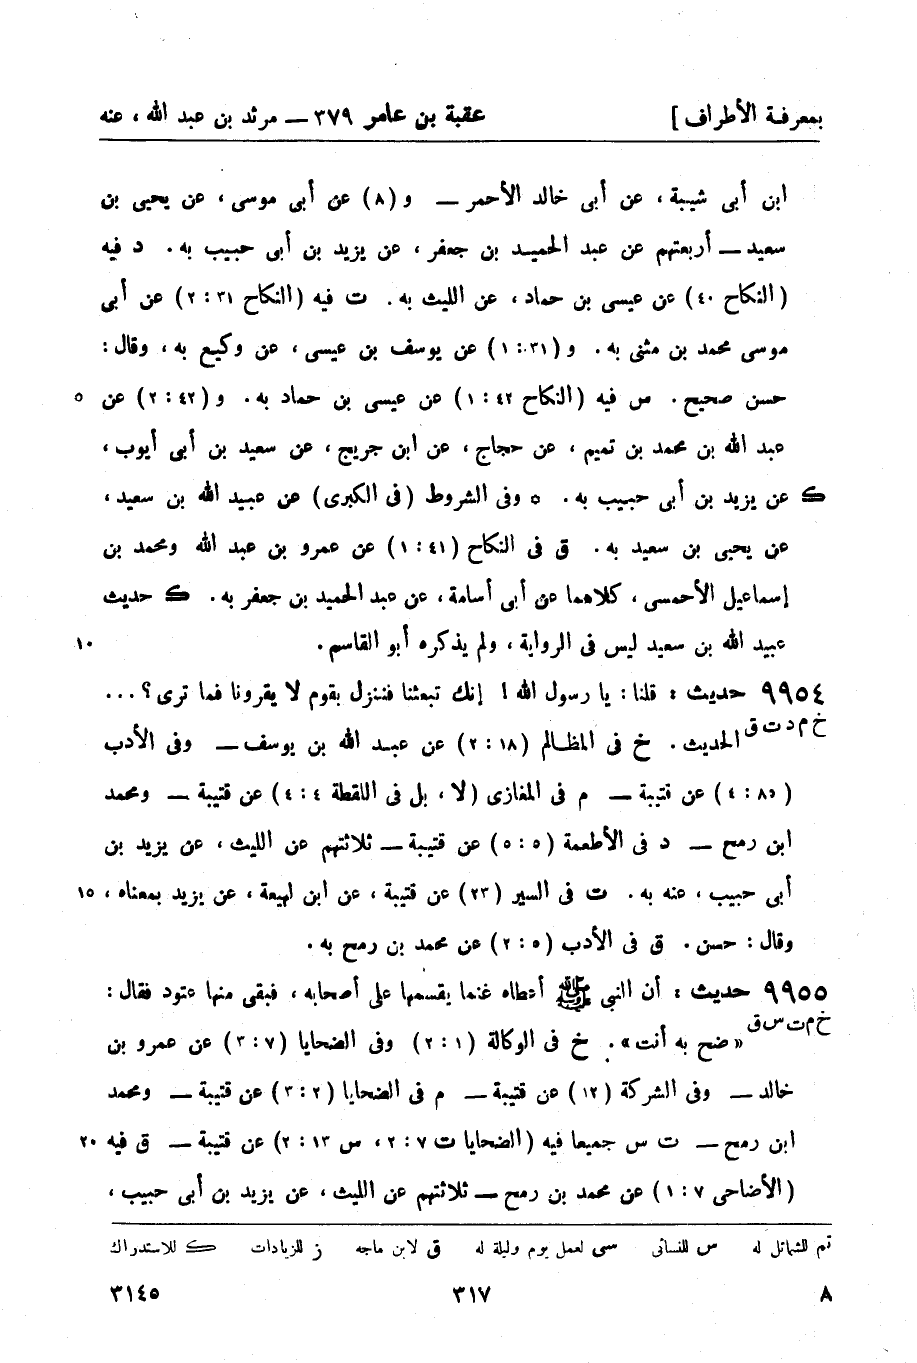 بمعرفة الأطراف ] عقبة بن عامر ٣٧٩ — مرثد بن عبد الله ، عنه
ابن أبى شيبة ، عن أبى خالد الأحمر — و (٨) عن أبى موسى ، عن يحيى بن
سعيد — أربعتهم عن عبد الحميد بن جعفر ، عن يزيد بن أبى حبيب به . د فيه
(النكاح ٤٠) عن عيسى بن حماد ، عن الليث به . ت فيه (النكاح ٣١ : ٢) عن أبى
موسى محمد بن مثنى به . و (٣١ : ١) عن يوسف بن عيسى ، عن وكيع به ، وقال :
حسن صحيح . س فيه (النكاح ٤٢ : ١) عن عيسى بن حماد به . و (٤٢ : ٢) عن ٥
عبد الله بن محمد بن تميم ، عن حجاج ، عن ابن جريج ، عن سعيد بن أبى أيوب ،
ك عن يزيد بن أبى حبيب به . ٥ وفى الشروط (فى الكبرى) عن عبيد الله بن سعيد ،
عن يحيى بن سعيد به . ق فى النكاح (٤١ : ١) عن عمرو بن عبد الله ومحمد بن
إسماعيل الأحمسى ، كلاهما عن أبى أسامة ، عن عبد الحميد بن جعفر به . ك حديث
عبيد الله بن سعيد ليس فى الرواية ، ولم يذكره أبو القاسم . ١٠
٩٩٥٤ حديث : قلنا : يا رسول الله ! إنك تبعثنا فننزل بقوم لا يقرونا فما ترى ؟ ...
خ م د ت ق الحديث . خ فى المظالم (١٨ : ٢) عن عبد الله بن يوسف — وفى الأدب
(٨٥ : ٤) عن قتيبة — م فى المغازى (لا ، بل فى اللقطة ٤ : ٤) عن قتيبة — ومحمد
ابن رمح — د فى الأطعمة (٥ : ٥) عن قتيبة — ثلاثتهم عن الليث ، عن يزيد بن
أبى حبيب ، عنه به . ت فى السير (٢٣) عن قتيبة ، عن ابن لهيعة ، عن يزيد بمعناه ، ١٥
وقال : حسن . ق فى الأدب (٥ : ٢) عن محمد بن رمح به .
٩٩٥٥ حديث : أن النبي ﷺ أعطاه غنما يقسمها على أصحابه ، فبقى منها عتود فقال :
خ م ت س ق «ضح به أنت» . خ فى الوكالة (١ : ٢) وفى الضحايا (٧ : ٣) عن عمرو بن
خالد — وفى الشركة (١٢) عن قتيبة — م فى الضحايا (٢ : ٣) عن قتيبة — ومحمد
ابن رمح — ت س جميعا فيه (الضحايا ت ٧ : ٢ ، س ١٣ : ٢) عن قتيبة — ق فيه ٢٠
(الأضاحى ٧ : ١) عن محمد بن رمح — ثلاثتهم عن الليث ، عن يزيد بن أبى حبيب ،
تم للشمائل له س للنسائى سى لعمل يوم وليلة له ق لابن ماجه ز للزيادات ك للاستدراك
٨ ٣١٧ ٣١٤٥